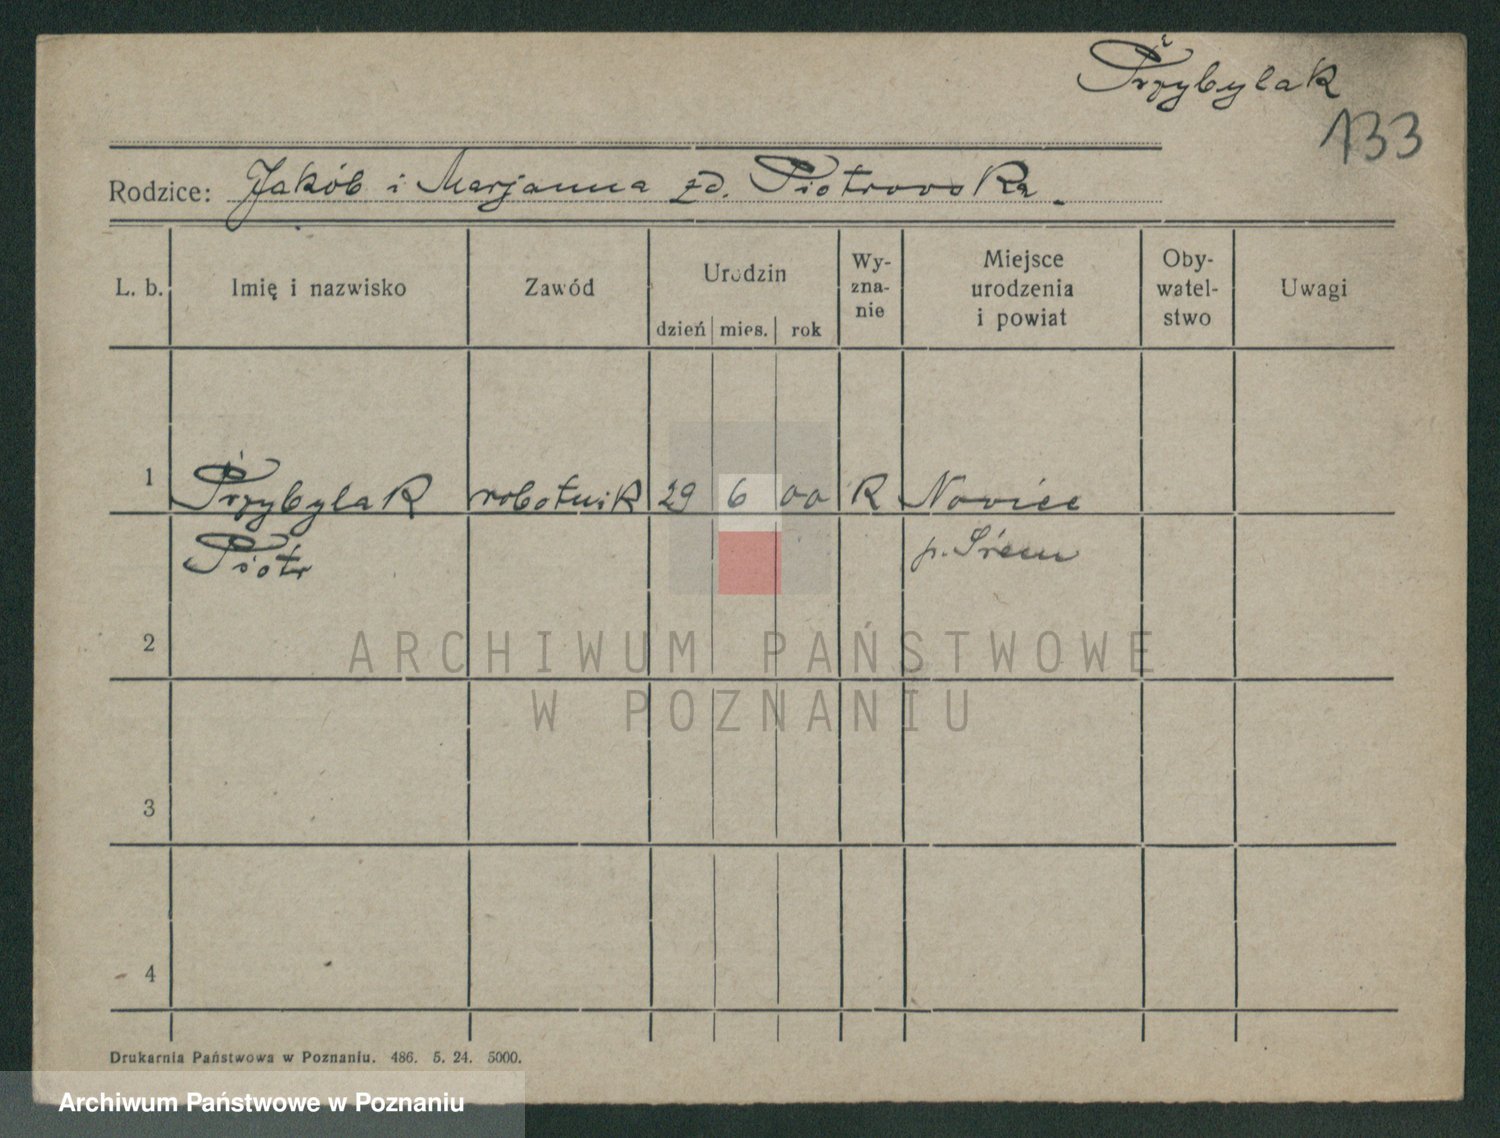 Przybylak
133
Rodzice: Jakób i Marjanna zd. Piotrowska
L. b. Imię i nazwisko Zawód Urodzin Wy-zna-nie Miejsce urodzenia i powiat Oby-watel-stwo Uwagi
dzień mies. rok
1 Przybylak robotnik 29 6 00 R
Piotr p. Śrem
2
ARCHIWUM PAŃSTWOWE
W POZNANIU
3
4
Drukarnia Państwowa w Poznaniu. 486. 5. 24. 5000.
Archiwum Państwowe w Poznaniu